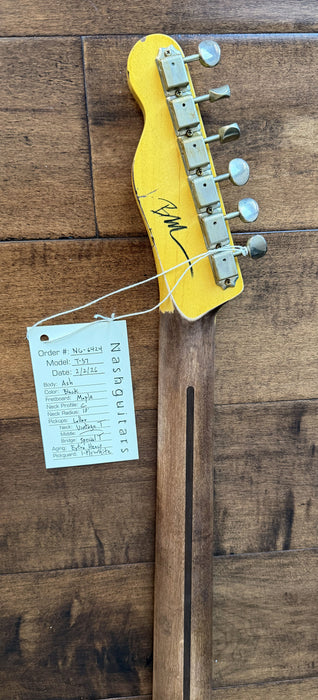 Nashguitars
Order #: NG-6424
Model: T-57
Date: 2/2/26
Body: Ash
Color: Black
Fretboard: Maple
Neck Profile:
Neck Radius: 10"
Pickups: Lollar
Neck: Vintage T
Middle:
Bridge: Special T
Aging: Extra Heavy
Pickguard: 1-Ply White